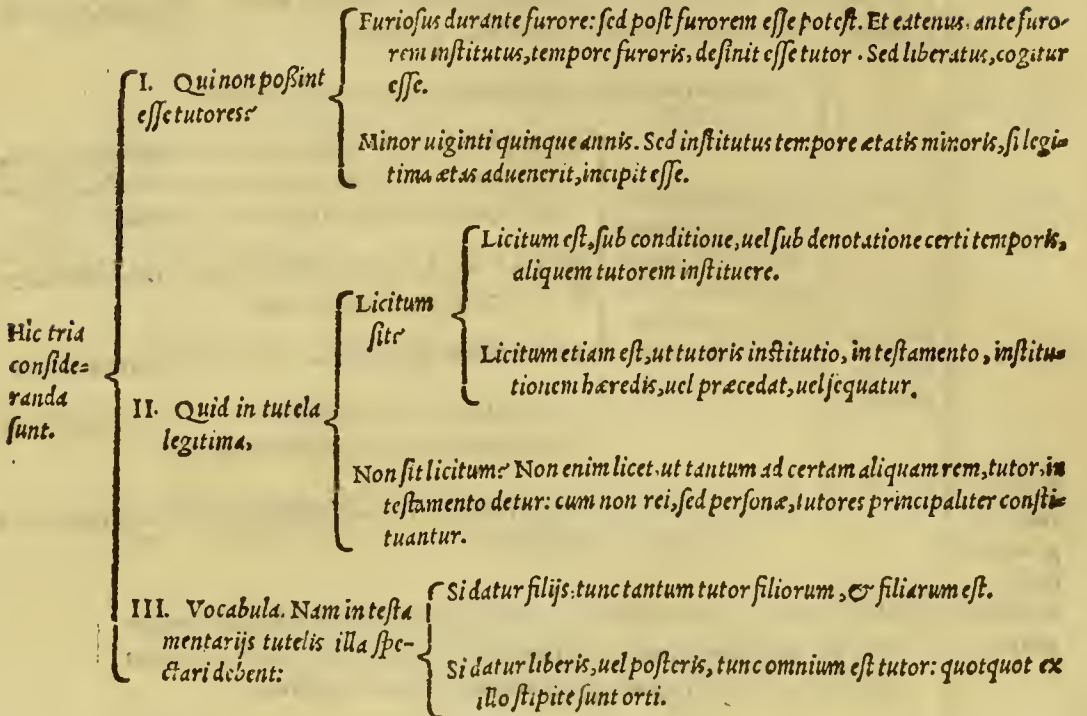 Hic tria
conſide=
randa
ſunt.
I. Qui non poßint
eſſe tutores?
Furioſus durante furore: ſed poſt furorem eſſe poteſt. Et eatenus, ante furo-
rem inſtitutus, tempore furoris, deſinit eſſe tutor. Sed liberatus, cogitur
eſſe.
Minor uiginti quinque annis. Sed inſtitutus tempore ætatis minoris, ſi legi=
tima ætas aduenerit, incipit eſſe.
II. Quid in tutela
legitima,
Licitum
ſit?
Licitum eſt, ſub conditione, uel ſub denotatione certi temporis,
aliquem tutorem inſtituere.
Licitum etiam eſt, ut tutoris inſtitutio, in teſtamento, inſtitu=
tionem hæredis, uel præcedat, uel ſequatur.
Non ſit licitum? Non enim licet, ut tantum ad certam aliquam rem, tutor, in
teſtamento detur: cum non rei, ſed perſonæ, tutores principaliter conſti=
tuantur.
III. Vocabula. Nam in teſta
mentarijs tutelis illa ſpe-
ctari debent:
Si datur filijs, tunc tantum tutor filiorum, & filiarum eſt.
Si datur liberis, uel poſteris, tunc omnium eſt tutor: quotquot ex
illo ſtipite ſunt orti.